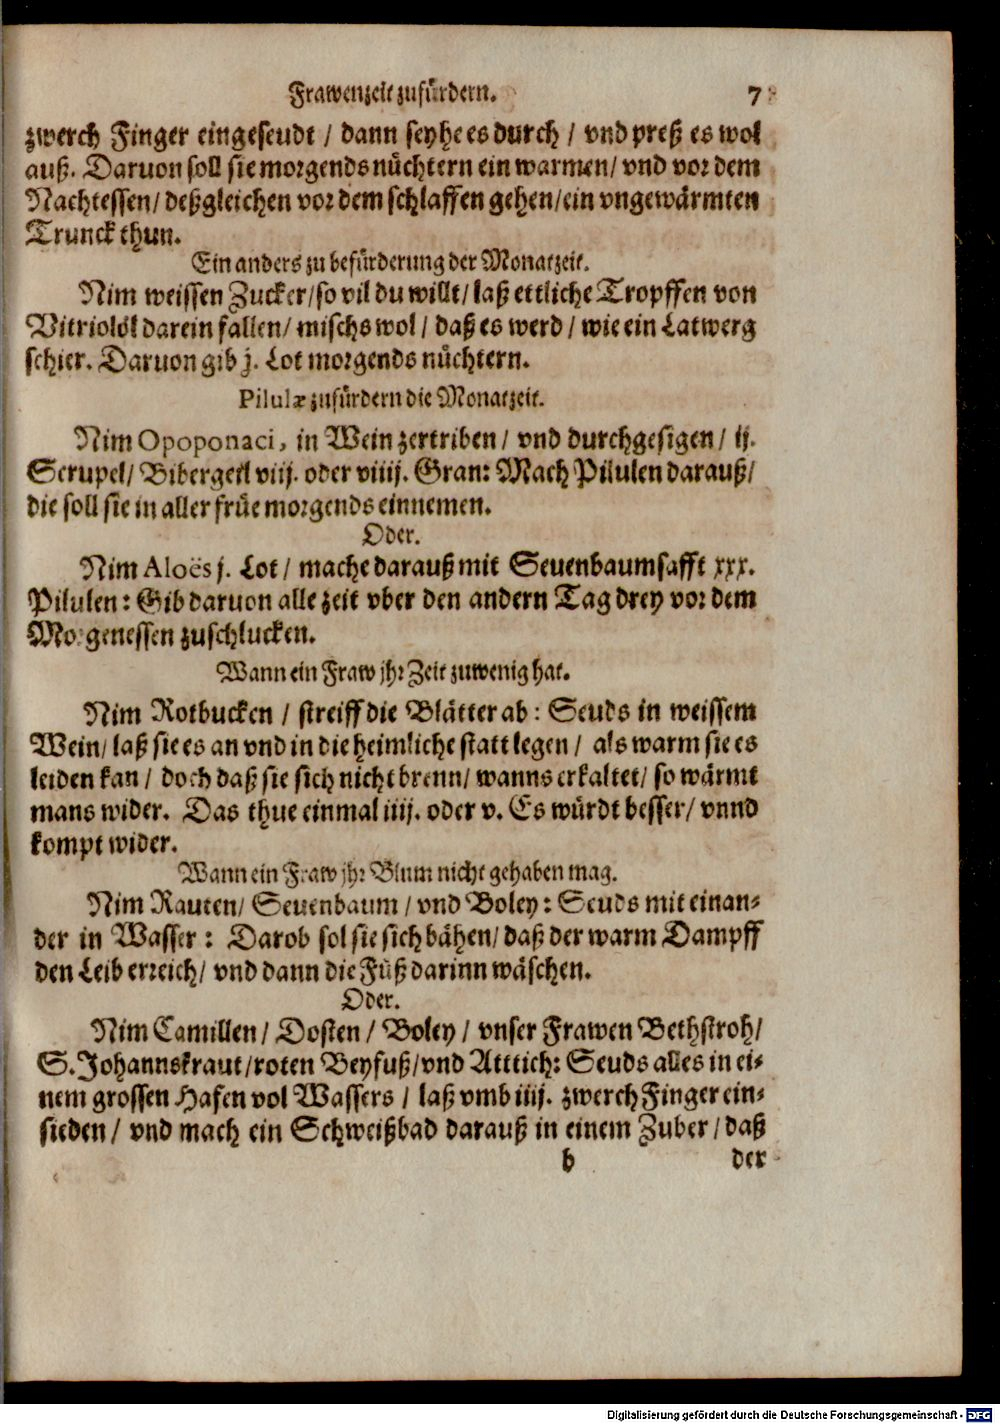 Frawenzeit zufürdern. 7
zwerch Finger eingeseudt / dann seyhe es durch / vnd preß es wol
auß. Daruon soll sie morgends nüchtern ein warmen / vnd vor dem
Nachtessen / deßgleichen vor dem schlaffen gehen / ein vngewärmten
Trunck thun.
Ein anders zu befürderung der Monatzeit.
Nim weissen Zucker / so vil du willt / laß ettliche Tropffen von
Vitriolöl darein fallen / mischs wol / daß es werd / wie ein Latwerg
schier. Daruon gib j. Lot morgends nüchtern.
Pilulæ zufürdern die Monatzeit.
Nim Opoponaci, in Wein zertriben / vnd durchgesigen / ij.
Scrupel / Bibergeil viij. oder viiij. Gran: Mach Pilulen darauß /
die soll sie in aller früe morgends einnemen.
Oder.
Nim Aloës j. Lot / mache darauß mit Seuenbaumsafft xxx.
Pilulen: Gib daruon alle zeit vber den andern Tag drey vor dem
Morgenessen zuschlucken.
Wann ein Fraw jhr Zeit zuwenig hat.
Nim Rotbucken / streiff die Blätter ab: Seuds in weissem
Wein / laß sie es an vnd in die heimliche statt legen / als warm sie es
leiden kan / doch daß sie sich nicht brenn / wanns erkaltet / so wärmt
mans wider. Das thue einmal iiij. oder v. Es würdt besser / vnnd
kompt wider.
Wann ein Fraw jhr Blum nicht gehaben mag.
Nim Rauten / Seuenbaum / vnd Boley: Seuds mit einan-
der in Wasser: Darob sol sie sich bähen / daß der warm Dampff
den Leib erreich / vnd dann die Füß darinn wäschen.
Oder.
Nim Camillen / Dosten / Boley / vnser Frawen Bethstroh /
S. Johannskraut / roten Beyfuß / vnd Atttich: Seuds alles in ei-
nem grossen Hafen vol Wassers / laß vmb iiij. zwerch Finger ein-
sieden / vnd mach ein Schweißbad darauß in einem Zuber / daß
b der
Digitalisierung gefördert durch die Deutsche Forschungsgemeinschaft - DFG